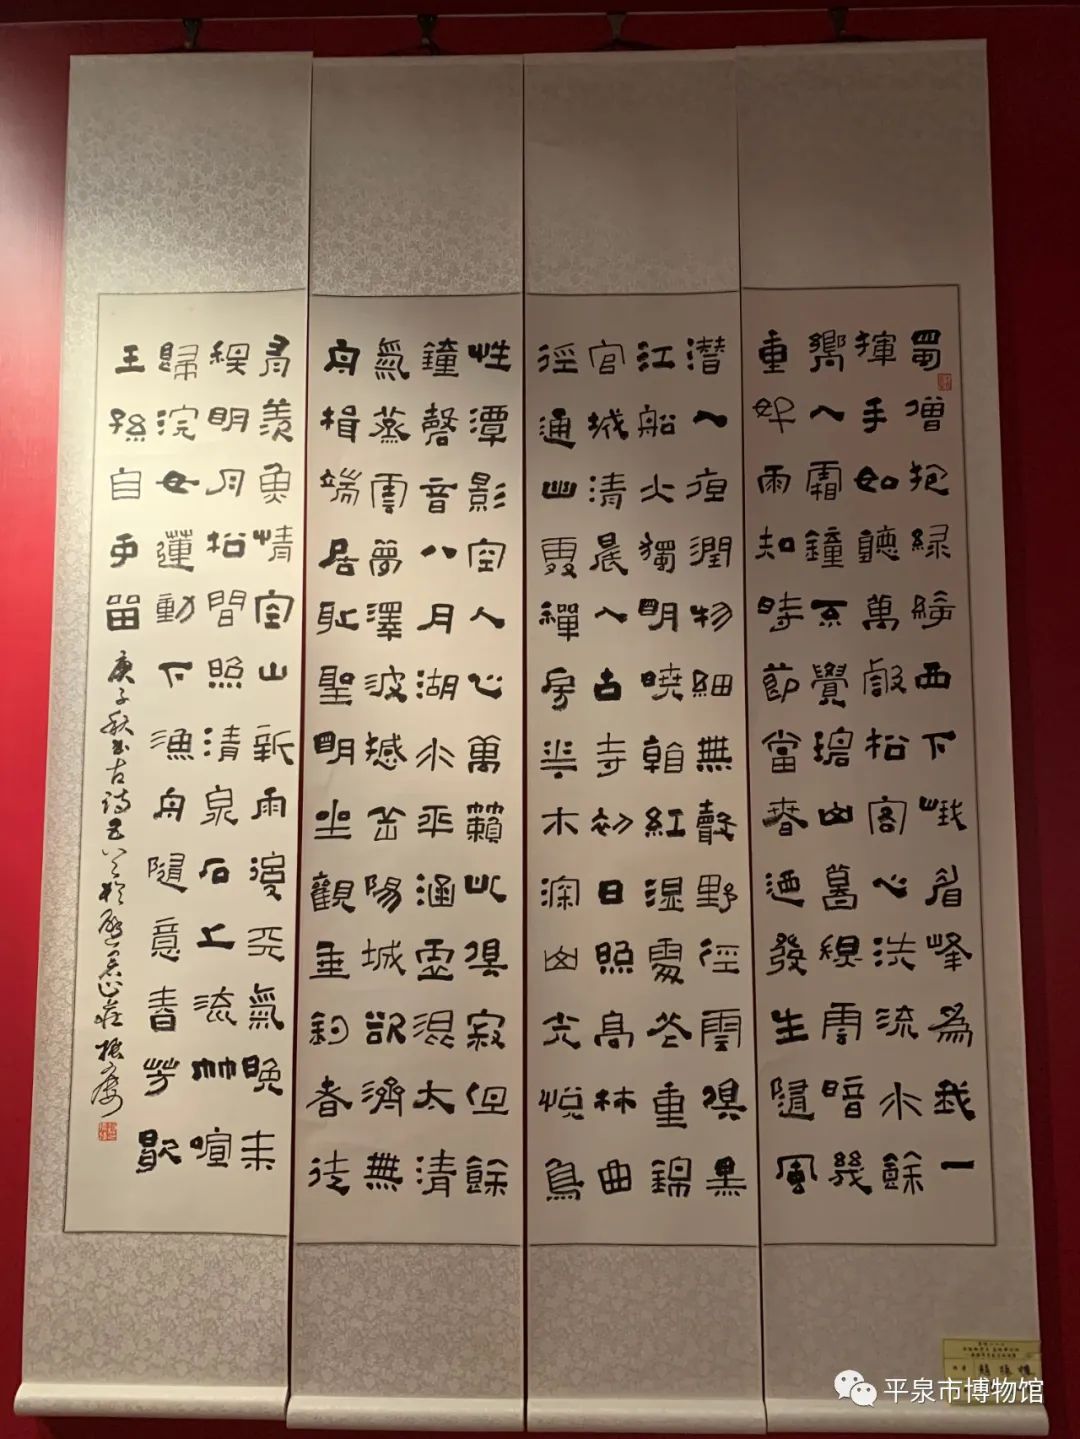 蜀僧抱緑綺西下峨眉峰為我一
揮手如聽萬壑松客心洗流水餘
響入霜鐘不覺碧山暮秋雲暗幾
重好雨知時節當春迺發生隨風
潛入夜潤物細無聲野徑雲俱黑
江船火獨明曉看紅湿處花重錦
官城清晨入古寺初日照高林曲
徑通幽處禪房花木深山光悅鳥
性潭影空人心萬籟此俱寂但餘
鐘磬音八月湖水平涵虛混太清
氣蒸雲夢澤波撼岳陽城欲濟無
舟楫端居恥聖明坐觀垂釣者徒
有羨魚情空山新雨後天氣晚来
秋明月松間照清泉石上流竹喧
歸浣女蓮動下漁舟隨意春芳歇
王孫自可留 庚子秋書古詩五首於
平泉市博物馆